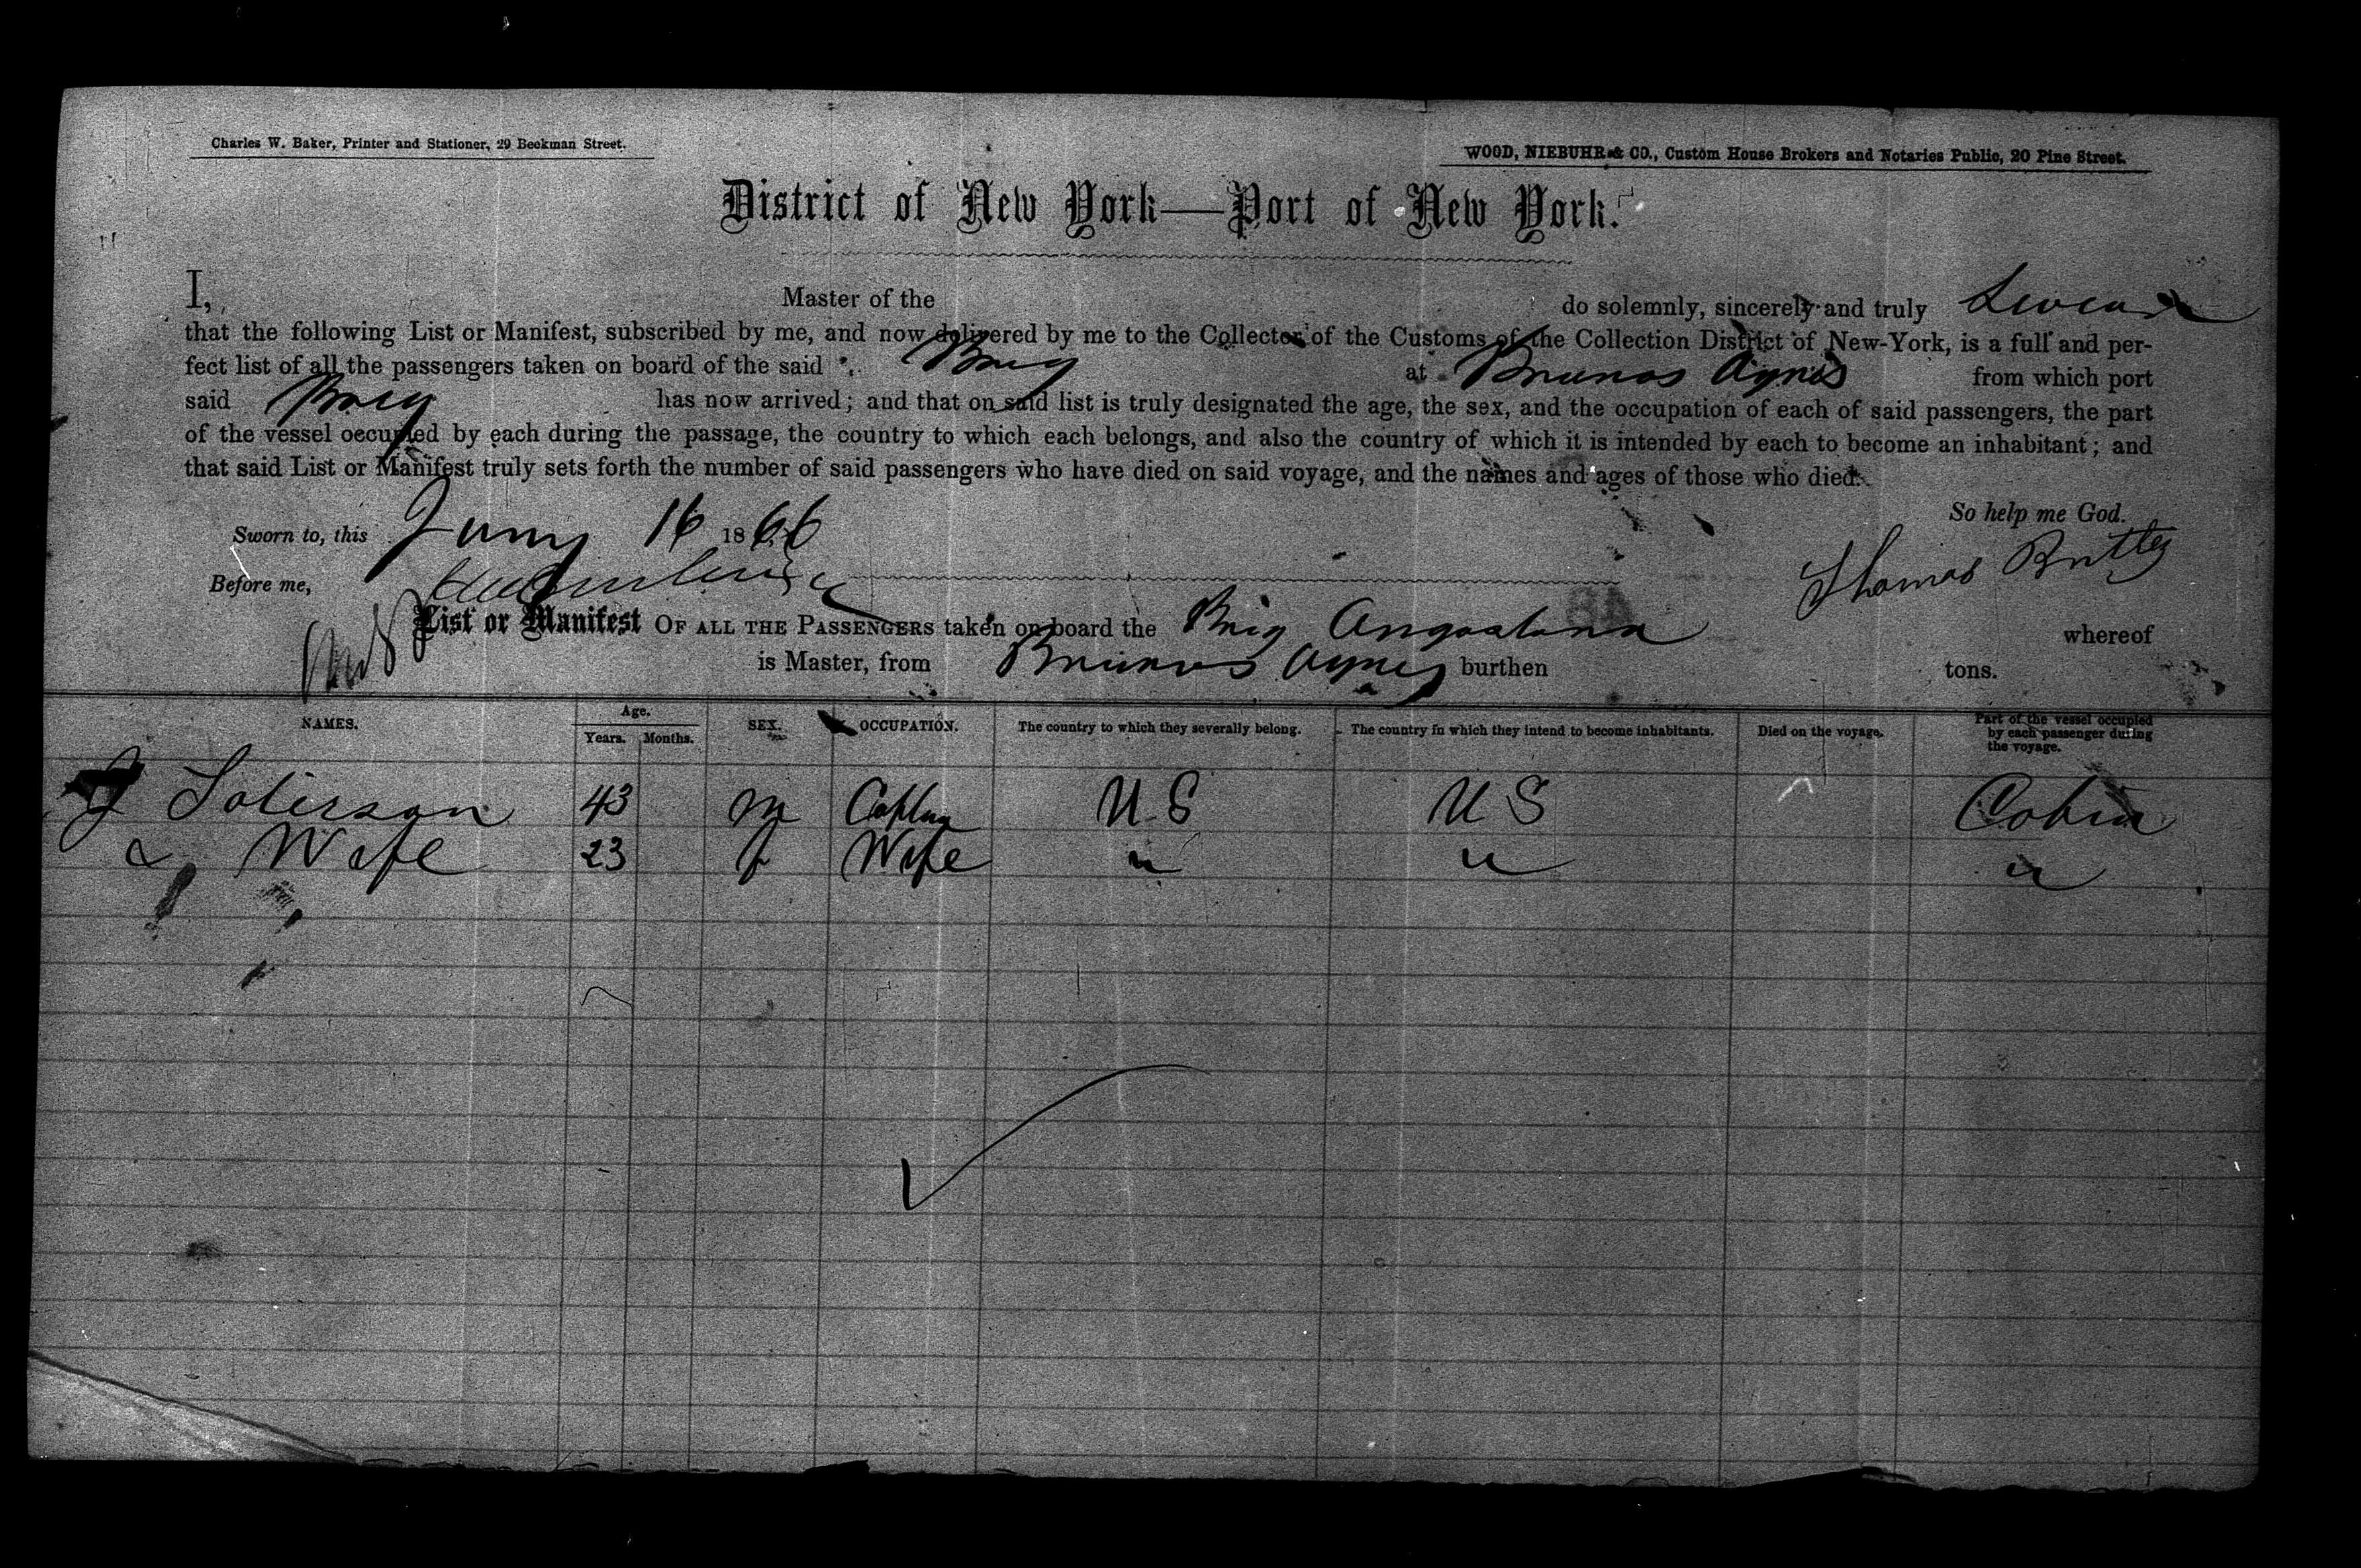 Charles W. Baker, Printer and Stationer, 29 Beekman Street.
WOOD, NIEBUHR & CO., Custom House Brokers and Notaries Public, 20 Pine Street.
District of New York—Port of New York.
I, Master of the do solemnly, sincerely and truly Swear
that the following List or Manifest, subscribed by me, and now delivered by me to the Collector of the Customs of the Collection District of New-York, is a full and per-
fect list of all the passengers taken on board of the said Brig at Buenos Ayres from which port
said Brig has now arrived; and that on said list is truly designated the age, the sex, and the occupation of each of said passengers, the part
of the vessel occupied by each during the passage, the country to which each belongs, and also the country of which it is intended by each to become an inhabitant; and
that said List or Manifest truly sets forth the number of said passengers who have died on said voyage, and the names and ages of those who died.
So help me God.
Sworn to, this 16 1866
Thomas
Before me,
List or Manifest OF ALL THE PASSENGERS taken on board the Brig whereof
is Master, from Buenos Ayres burthen tons.
NAMES. Age. Years. Months. SEX. OCCUPATION. The country to which they severally belong. The country in which they intend to become inhabitants. Died on the voyage. Part of the vessel occupied by each passenger during the voyage.
J 43 m U S U S Cabin
& Wife 23 f Wife " " "